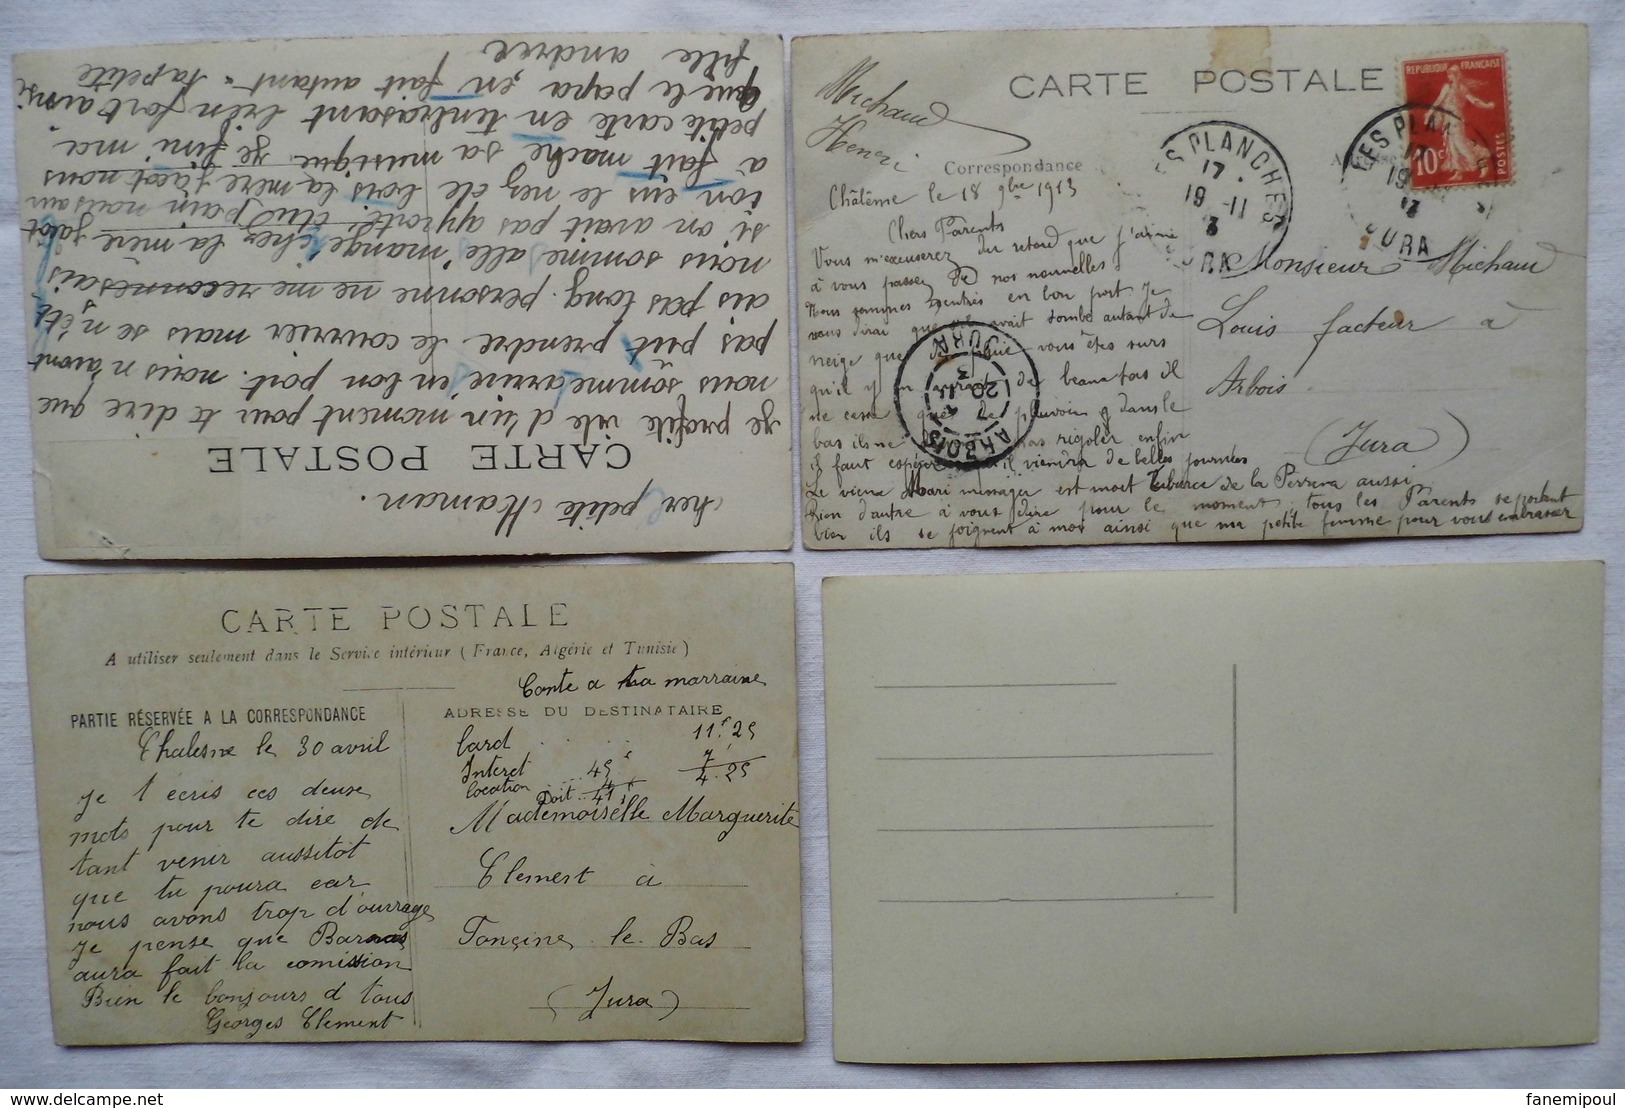 cher petite Maman.
CARTE POSTALE
je profite vite d'un moment pour te dire que
nous somme arrive en bon port. nous n'avont
pas put prendre le courrier mais se n'ète
ais pas long. personne ne me reconnesais
nous somme alle mange cher la mère jacot
si on avait pas apporté du pain nous aur
ion eus le nez de bois la mère jacot nous
à fait mache sa musique je fini ma
petite carte en t'enbrasant bien fort ainsi
que le papa en fait autant - ta petite
fille andree
Michaud
Henri
CARTE POSTALE
Correspondance
REPUBLIQUE FRANÇAISE
10c
POSTES
LES PLANCHES
17
19 -11
3
JURA
LES PLAN
17
19
13
JURA
Châtême le 18 9bre 1913
Chers Parents
Vous m'excuserez du retard que j'ai mi
à vous passer de nos nouvelles.
Nous sommes rentrés en bon port. Je
vous dirai que s'il avait tombé autant de
neige que de pluie vous êtes surs
qu'il y en de beau fois il
ne cesse que de pleuvoir dans le
bas ils ne pas rigoler enfin
il faut espérer qu'il viendra de belles journées
Le vieux Mari messager est mort Tiburce de la Perrena aussi
Rien d'autre à vous dire pour le moment, tous les Parents se portent
bien ils se joignent à moi ainsi que ma petite femme pour vous embrasser
ARBOIS
20-11
3
JURA
Monsieur Michaud
Louis facteur à
Arbois
(Jura)
CARTE POSTALE
A utiliser seulement dans le Service intérieur (France, Algérie et Tunisie)
PARTIE RÉSERVÉE A LA CORRESPONDANCE
Chalesne le 30 avril
je t écris ces deuse
mots pour te dire de
tant venir aussitôt
que tu poura car
nous avons trop d'ouvrage
je pense que Barnas
aura fait la comission
Bien le bonjours d tous
Georges Clement
Conte a ta marraine
ADRESSE DU DESTINATAIRE
Lard . . . 11f.25
Interet ... 45 7
location 4 4.25
Doit .. 41
Mademoiselle Marguerite
Clement à
Foncine le Bas
(Jura)
delcampe.net
fanemipoul